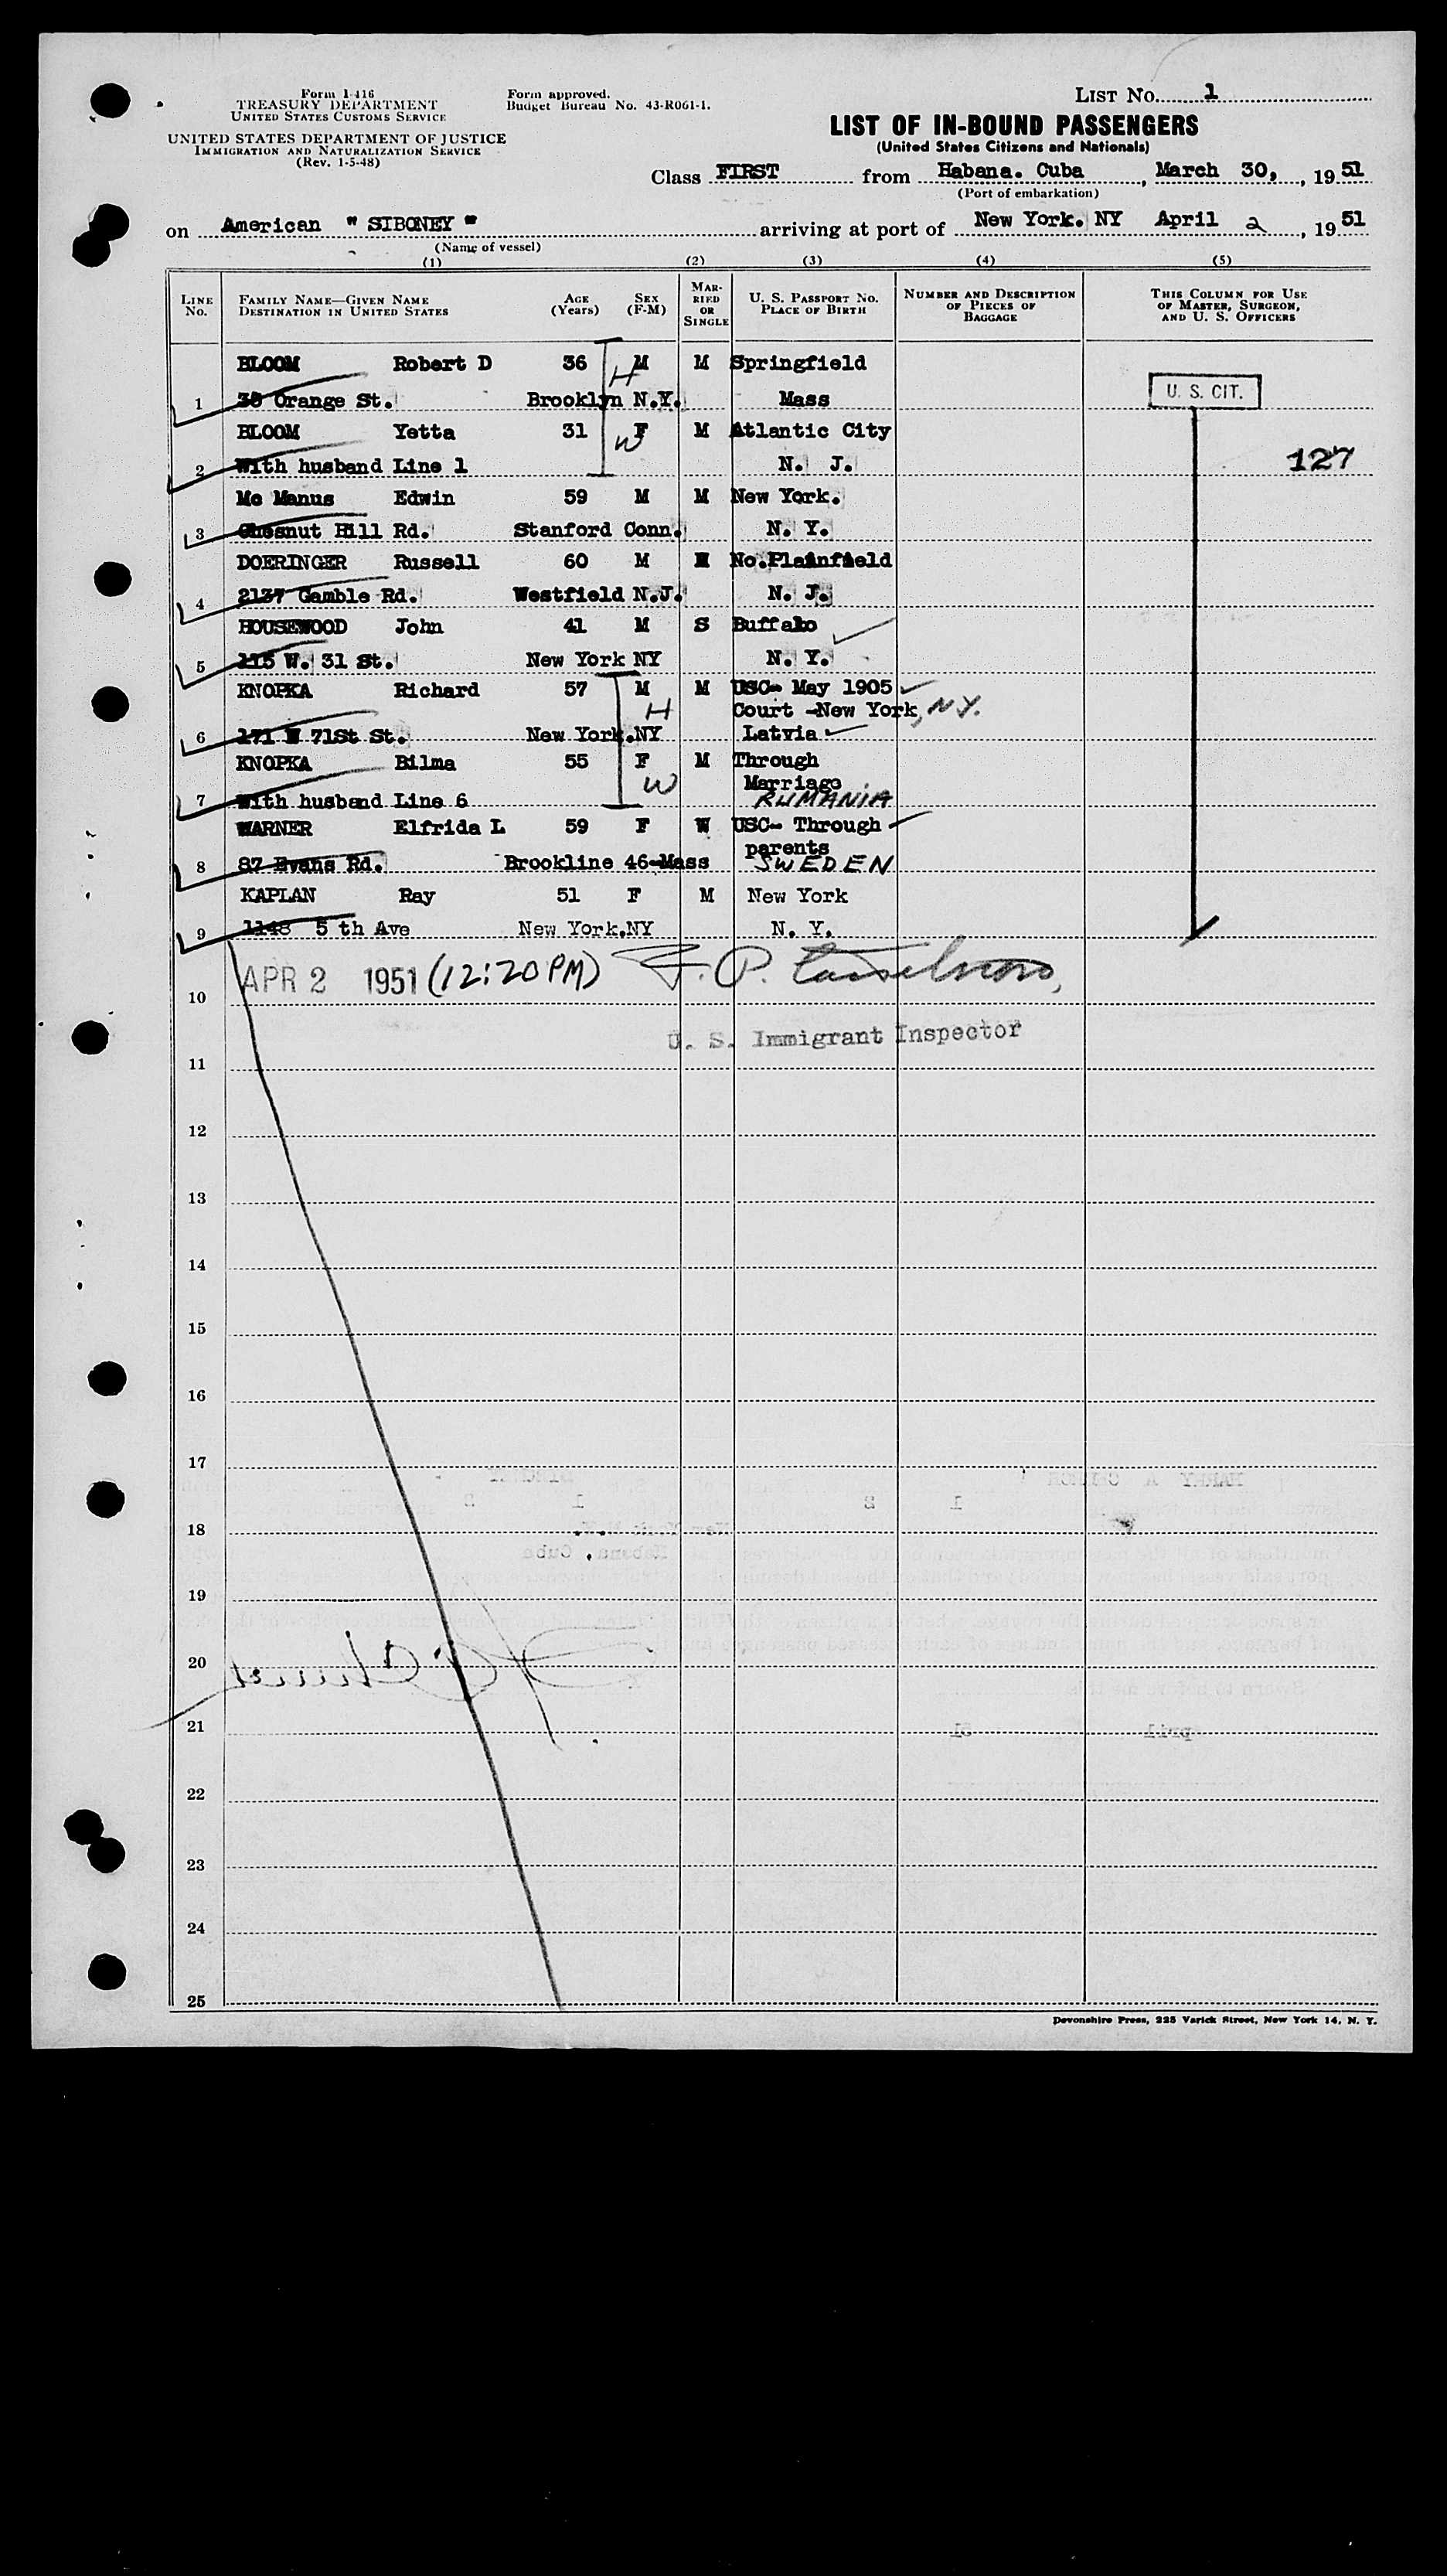 Form I-416
TREASURY DEPARTMENT
UNITED STATES CUSTOMS SERVICE
UNITED STATES DEPARTMENT OF JUSTICE
IMMIGRATION AND NATURALIZATION SERVICE
(Rev. 1-5-48)
Form approved.
Budget Bureau No. 43-R061-1.
LIST NO. 1
LIST OF IN-BOUND PASSENGERS
(United States Citizens and Nationals)
Class FIRST from Habana. Cuba, March 30, 1951
(Port of embarkation)
on American "SIBONEY" arriving at port of New York. NY April 2, 1951
(Name of vessel)
(1) (2) (3) (4) (5)
LINE NO. FAMILY NAME—GIVEN NAME DESTINATION IN UNITED STATES AGE (Years) SEX (F-M) MARRIED OR SINGLE U. S. PASSPORT NO. PLACE OF BIRTH NUMBER AND DESCRIPTION OF PIECES OF BAGGAGE THIS COLUMN FOR USE OF MASTER, SURGEON, AND U. S. OFFICERS
BLOOM Robert D 36 M H M Springfield
1 35 Orange St. Brooklyn N.Y. Mass U. S. CIT.
BLOOM Yetta 31 F W M Atlantic City
2 With husband Line 1 N. J. 127
Mc Manus Edwin 59 M M New York.
3 Chesnut Hill Rd. Stanford Conn. N. Y.
DOERINGER Russell 60 M M No.Plainfield
4 2137 Gamble Rd. Westfield N.J. N. J.
HOUSEWOOD John 41 M S Buffalo
5 115 W. 31 St. New York NY N. Y.
KNOPKA Richard 57 M M USC- May 1905
H Court -New York, N.Y.
6 171 W 71St St. New York.NY Latvia
KNOPKA Bilma 55 F M Through
W Marriage
7 With husband Line 6 RUMANIA
WARNER Elfrida L 59 F W USC- Through
parents
8 87 Evans Rd. Brookline 46-Mass SWEDEN
KAPLAN Ray 51 F M New York
9 1148 5 th Ave New York.NY N. Y.
APR 2 1951 (12:20PM) F. P.
10
U. S. Immigrant Inspector
11
12
13
14
15
16
17
18
19
20
21
22
23
24
25
Devonshire Press, 225 Varick Street, New York 14, N. Y.